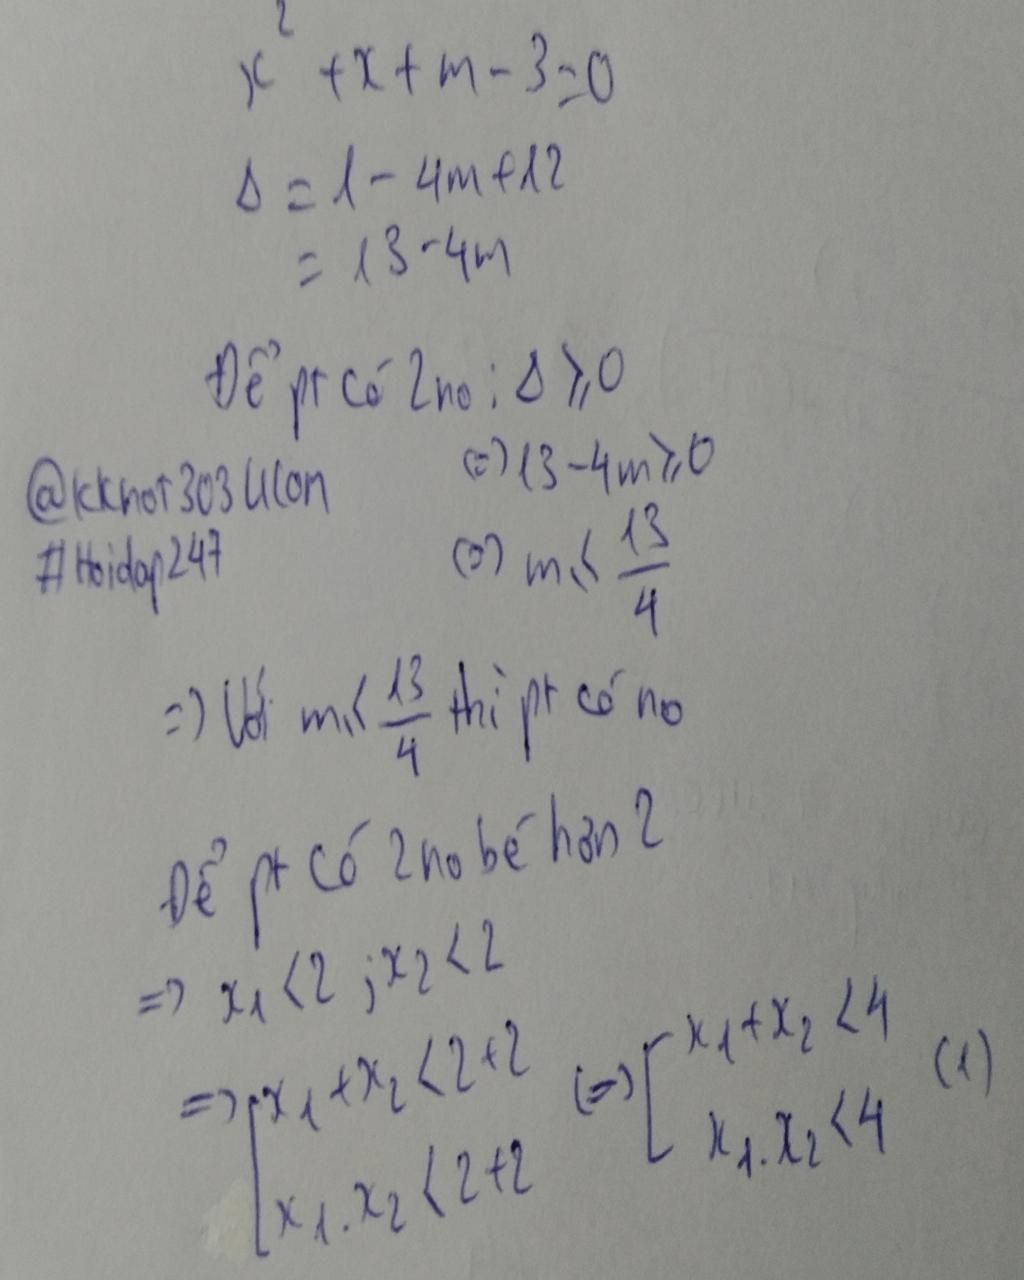 x² + x + m - 3 = 0
Δ = 1 - 4m + 12
= 13 - 4m
Để pt có 2 no : Δ ⩾ 0
(=) 13 - 4m ⩾ 0
@kkhot303Ulon
#Hoidap247
(=) m ⩽ 13/4
=) Với m ⩽ 13/4 thì pt có no
Để pt có 2 no bé hơn 2
=) x₁ < 2 ; x₂ < 2
=) [ x₁ + x₂ < 2 + 2 (=) [ x₁ + x₂ < 4 (1)
x₁ . x₂ < 2 + 2 x₁ . x₂ < 4